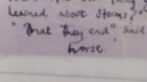 learned about storms?"
"That they end" said
horse.